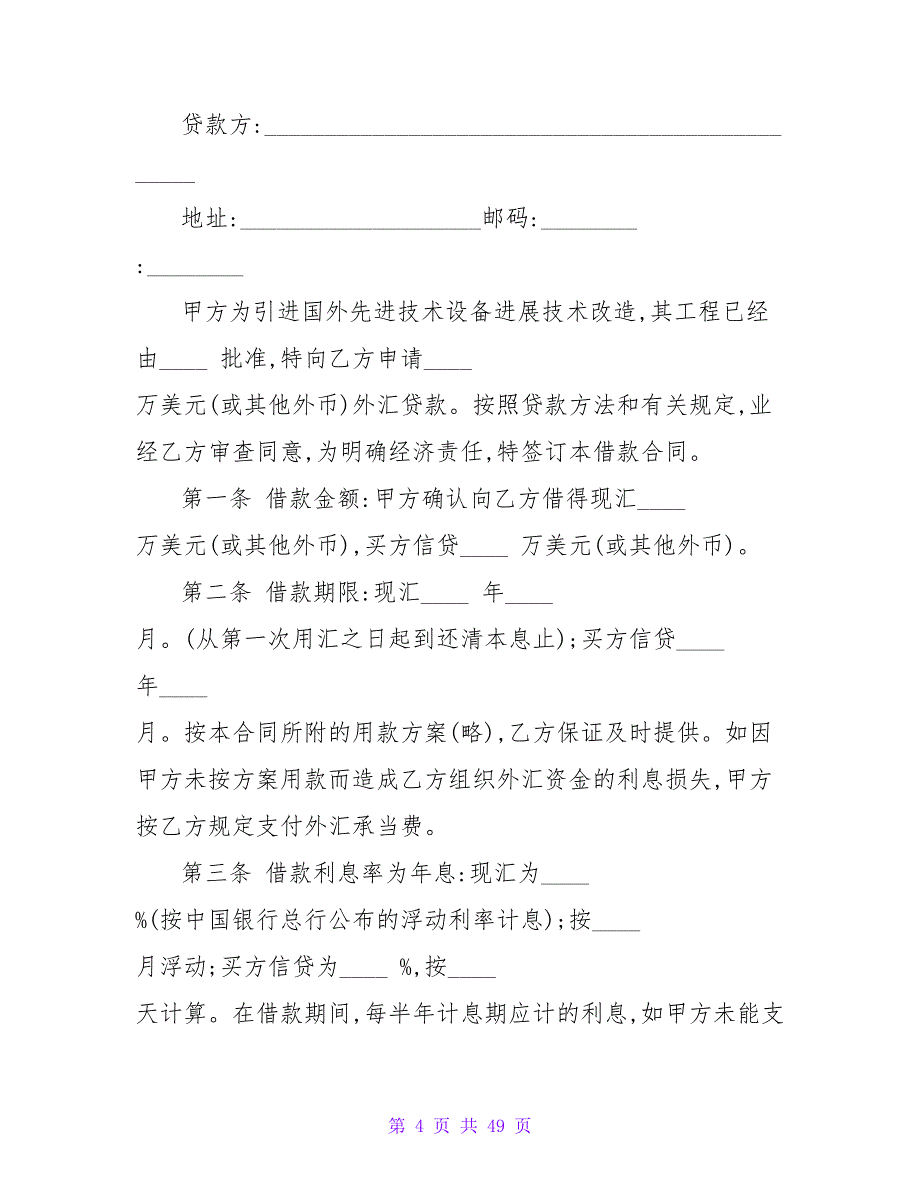 贷款方:___________________________________________
_____
地址:____________________邮码:________
:________
甲方为引进国外先进技术设备进展技术改造,其工程已经
由____ 批准,特向乙方申请____
万美元(或其他外币)外汇贷款。按照贷款方法和有关规定,业
经乙方审查同意,为明确经济责任,特签订本借款合同。
第一条 借款金额:甲方确认向乙方借得现汇____
万美元(或其他外币),买方信贷____ 万美元(或其他外币)。
第二条 借款期限:现汇____ 年____
月。(从第一次用汇之日起到还清本息止);买方信贷____
年____
月。按本合同所附的用款方案(略),乙方保证及时提供。如因
甲方未按方案用款而造成乙方组织外汇资金的利息损失,甲方
按乙方规定支付外汇承当费。
第三条 借款利息率为年息:现汇为____
%(按中国银行总行公布的浮动利率计息);按____
月浮动;买方信贷为____ %,按____
天计算。在借款期间,每半年计息期应计的利息,如甲方未能支
第 4 页 共 49 页